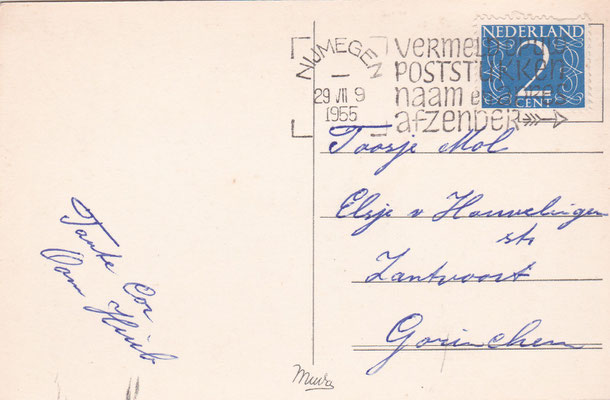 NIJMEGEN
29 VII 9
1955
VERMELD OP
POSTSTUKKEN
naam en adres
afzender
NEDERLAND
2
CENT
Toosje Mol
Elsje v Houwelingen
str
Zantvoort
Gorinchem
Tante Cor
Oom Huib